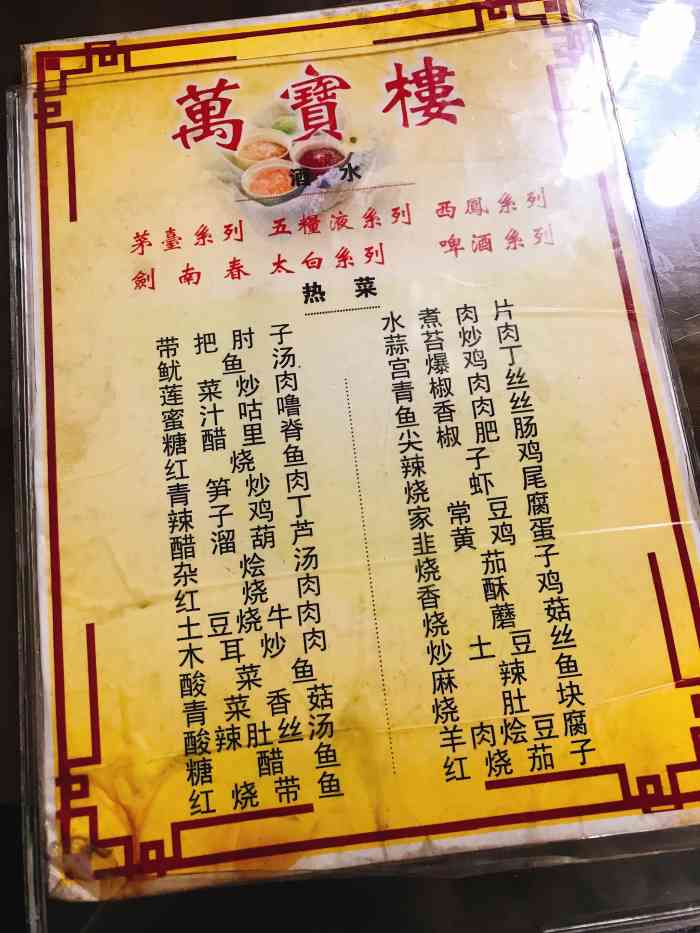 萬寶樓
酒水
茅臺系列 五糧液系列 西鳳系列
劍南春 太白系列 啤酒系列
热菜
带把肘子 水煮肉片
鱿鱼汤 蒜苔炒肉
莲菜炒肉 宫爆鸡丁
蜜汁咕噜 青椒肉丝
糖醋里脊 鱼香肉丝
红烧鱼 尖椒肥肠
青笋炒肉 辣子鸡
辣子鸡丁 烧虾尾
醋溜葫芦 家常豆腐
杂烩汤 韭黄鸡蛋
红烧肉 烧茄子
土豆烧牛肉 香酥鸡
木耳炒肉 烧蘑菇
酸菜鱼 炒土豆丝
青菜香菇 麻辣鱼
酸辣肚丝汤 烧肚块
糖醋鱼 羊肉烩豆腐
红烧带鱼 红烧茄子